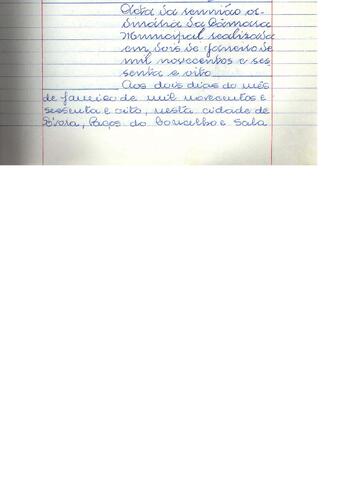 Acta da reunião or-
dinária da Câmara
Municipal realizada
em dois de Janeiro de
mil novecentos e ses
senta e oito
Aos dois dias do mês
de Janeiro de mil novecentos e
sessenta e oito, nesta cidade de
Évora, Paços do Concelho e Sala